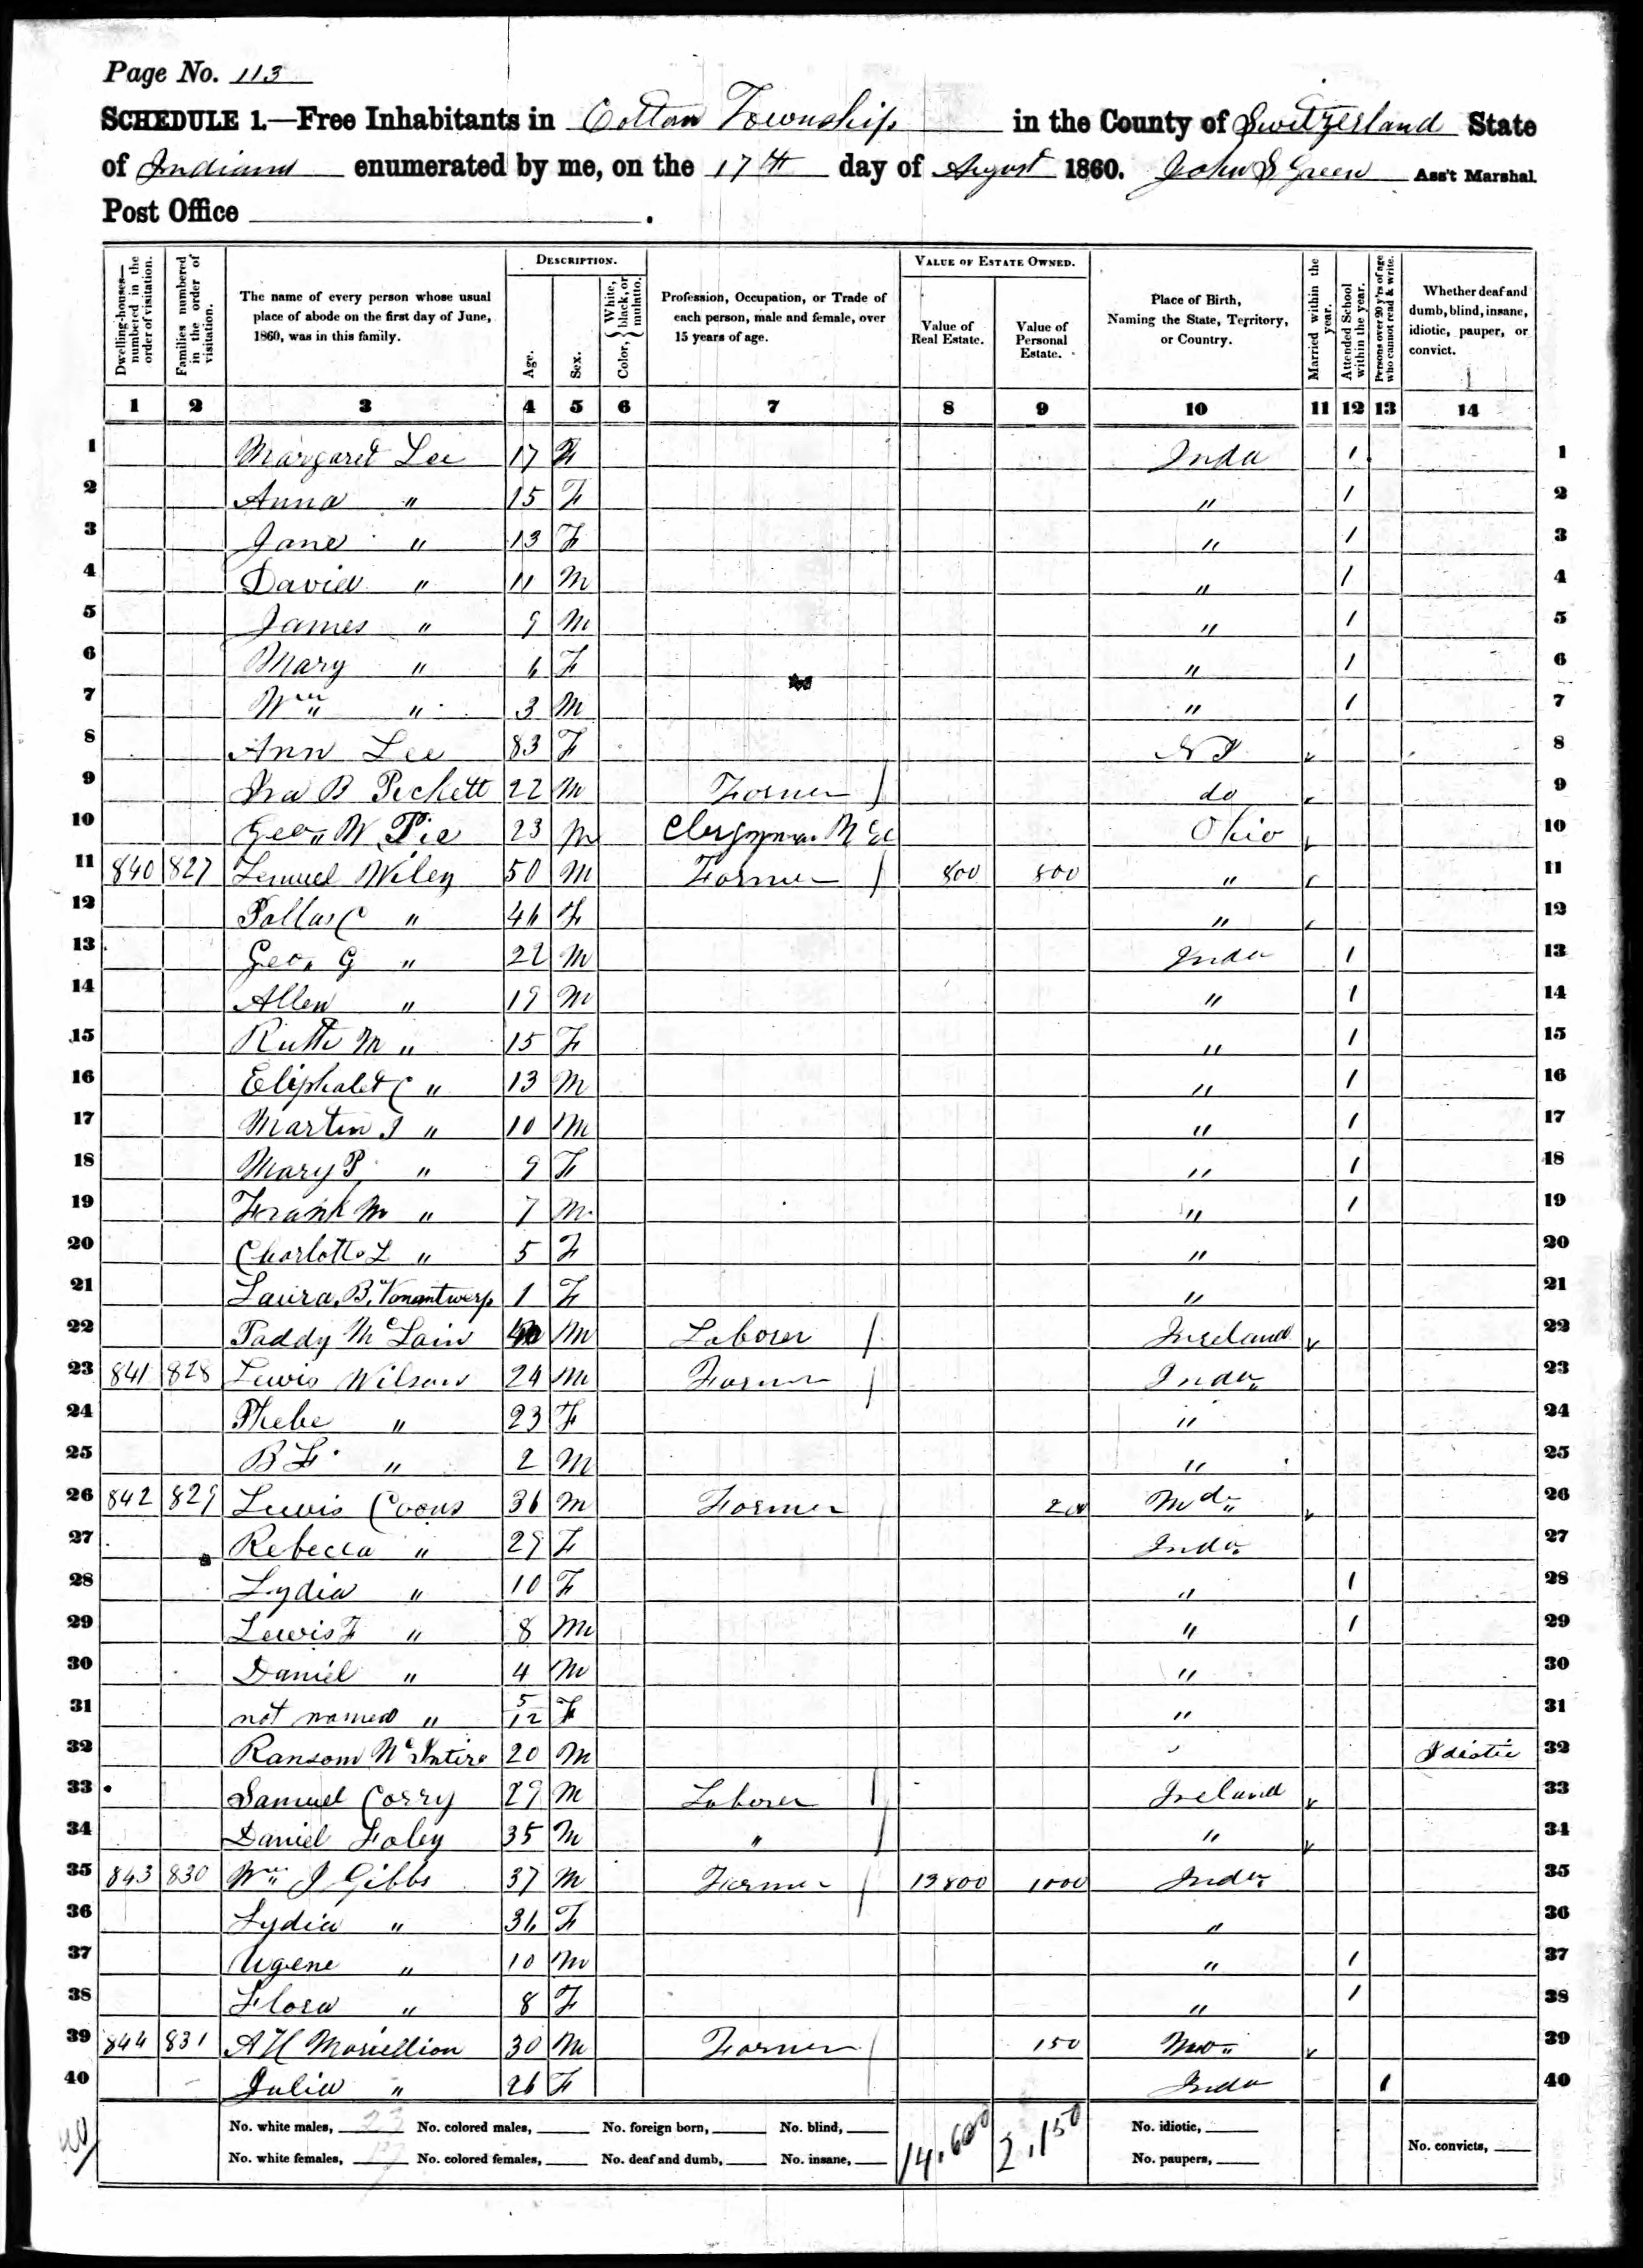 Page No. 113
SCHEDULE 1.—Free Inhabitants in Cotton Township in the County of Switzerland State
of Indiana enumerated by me, on the 17th day of August 1860. John S Green Ass't Marshal.
Post Office
Dwelling-houses—numbered in the order of visitation.
Families numbered in the order of visitation.
The name of every person whose usual place of abode on the first day of June, 1860, was in this family.
DESCRIPTION.
Age.
Sex.
Color, { White, black, or mulatto.
Profession, Occupation, or Trade of each person, male and female, over 15 years of age.
VALUE OF ESTATE OWNED.
Value of Real Estate.
Value of Personal Estate.
Place of Birth, Naming the State, Territory, or Country.
Married within the year.
Attended School within the year.
Persons over 20 y'rs of age who cannot read & write.
Whether deaf and dumb, blind, insane, idiotic, pauper, or convict.
1 2 3 4 5 6 7 8 9 10 11 12 13 14
1 Margaret Lee 17 F Inda 1 1
2 Anna " 15 F " 1 2
3 Jane " 13 F " 1 3
4 David " 11 M " 1 4
5 James " 9 M " 1 5
6 Mary " 6 F " 1 6
7 Wm " 3 M " 1 7
8 Ann Lee 83 F 8
9 Ira B Pickett 22 M Farmer do 9
10 Geo. W Pie 23 M Clergyman M Ec Ohio 10
11 840 827 Lemuel Wiley 50 M Farmer 800 800 " 11
12 " 46 F " 12
13 Geo. G " 22 M Inda 1 13
14 Allen " 19 M " 1 14
15 Ruth M " 15 F " 1 15
16 Eliphalet C " 13 M " 1 16
17 Martin J " 10 M " 1 17
18 Mary P " 9 F " 1 18
19 Frank M " 7 M " 1 19
20 Charlotte L " 5 F " 20
21 Laura B. Vanantwerp 1 F " 21
22 Paddy McLain M Laborer Ireland 22
23 841 828 Lewis Wilson 24 M Farmer Inda 23
24 Phebe " 23 F " 24
25 B F " 2 M " 25
26 842 829 Lewis Coons 36 M Farmer 200 Md 26
27 Rebecca " 29 F Inda 27
28 Lydia " 10 F " 1 28
29 Lewis F " 8 M " 1 29
30 Daniel " 4 M " 30
31 not named " 5/12 F " 31
32 Ransom McIntire 20 M " Idiotic 32
33 Samuel Corry 29 M Laborer Ireland 33
34 Daniel Foley 35 M " " 34
35 843 830 Wm J Gibbs 37 M Farmer 13800 1000 Inda 35
36 Lydia " 36 F " 36
37 Ugene " 10 M " 1 37
38 Flora " 8 F " 1 38
39 844 831 A H 30 M Farmer 150 39
40 Julia " 26 F Inda 1 40
No. white males, 23 No. colored males, No. foreign born, No. blind, 14,600 2,150 No. idiotic,
No. white females, 17 No. colored females, No. deaf and dumb, No. insane, No. paupers, No. convicts,
40